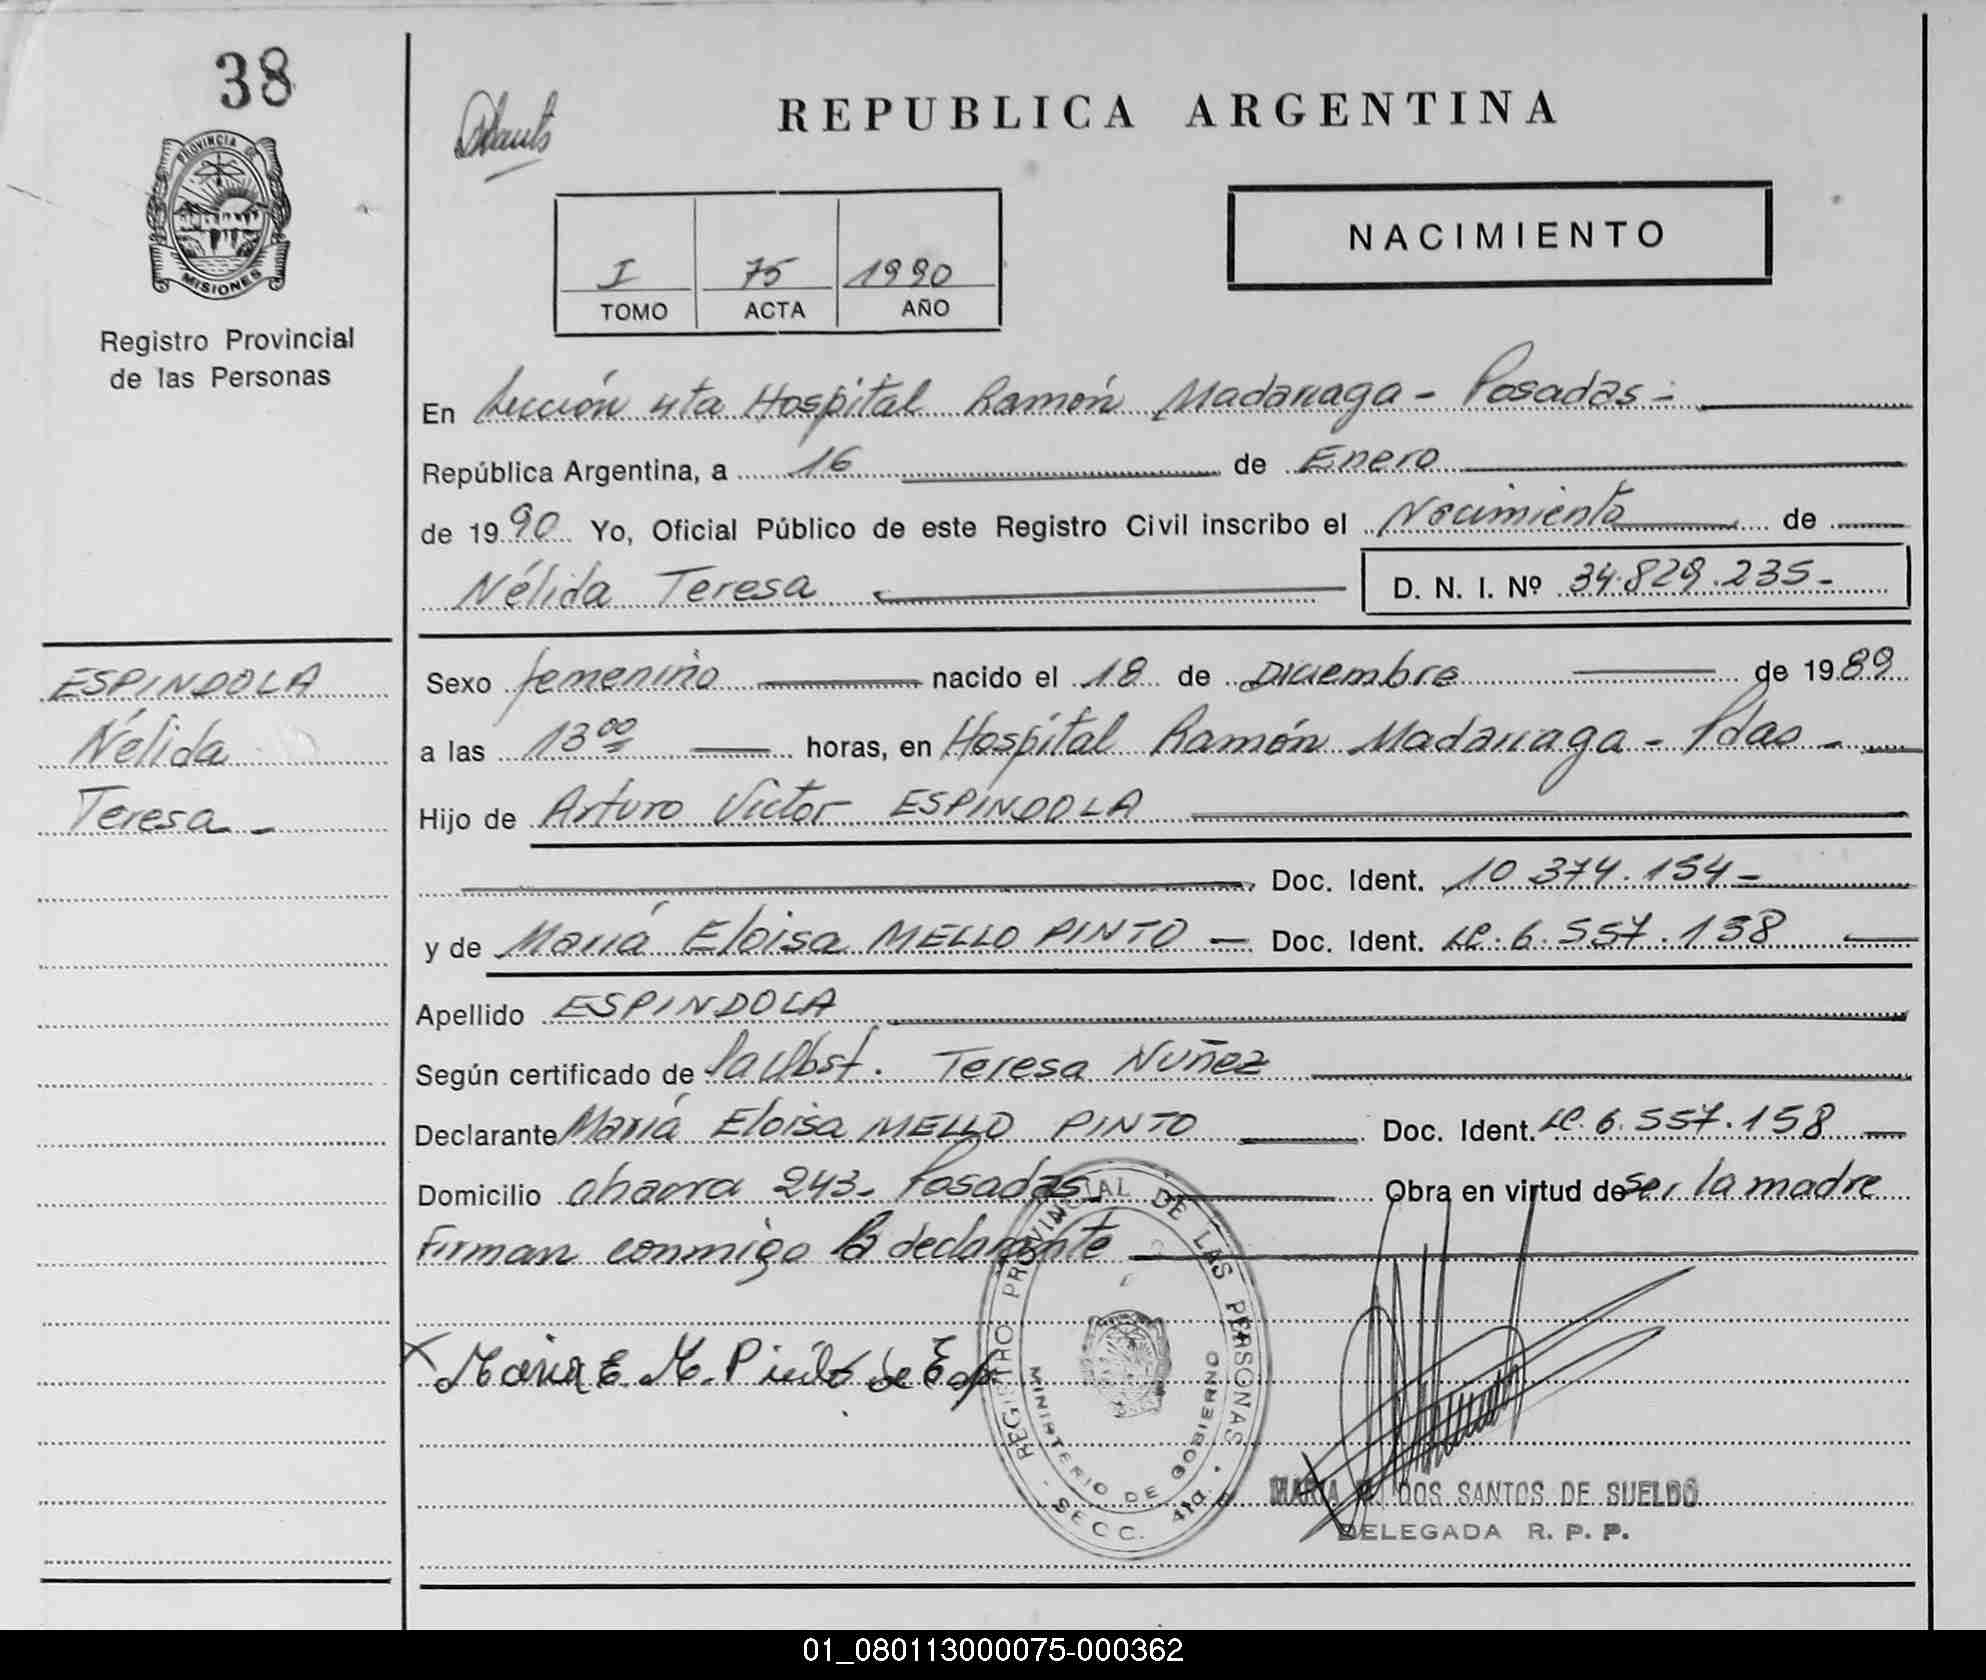 38
PROVINCIA DE
MISIONES
Registro Provincial
de las Personas
ESPINDOLA
Nélida
Teresa -
REPUBLICA ARGENTINA
NACIMIENTO
I 75 1990
TOMO ACTA AÑO
En Sección 4ta Hospital Ramón Madariaga - Posadas -
República Argentina, a 16 de Enero
de 1990 Yo, Oficial Público de este Registro Civil inscribo el Nacimiento de
Nélida Teresa D. N. I. Nº 34.829.235-
Sexo femenino nacido el 18 de Diciembre de 1989
a las 13 00 horas, en Hospital Ramón Madariaga - Pdas -
Hijo de Arturo Victor ESPINDOLA
Doc. Ident. 10.374.154-
y de María Eloisa MELLO PINTO - Doc. Ident. LC. 6.557.138
Apellido ESPINDOLA
Según certificado de la Obst. Teresa Nuñez
Declarante María Eloisa MELLO PINTO Doc. Ident. LC. 6.557.158
Domicilio 243- Posadas- Obra en virtud de ser la madre
Firman conmigo la declarante
X Maria E. M. Pinto de Esp
REGISTRO PROVINCIAL DE LAS PERSONAS
MINISTERIO DE GOBIERNO
- SECC. 4ta. -
MARIA DOS SANTOS DE SUELDO
DELEGADA R. P. P.
01_080113000075-000362